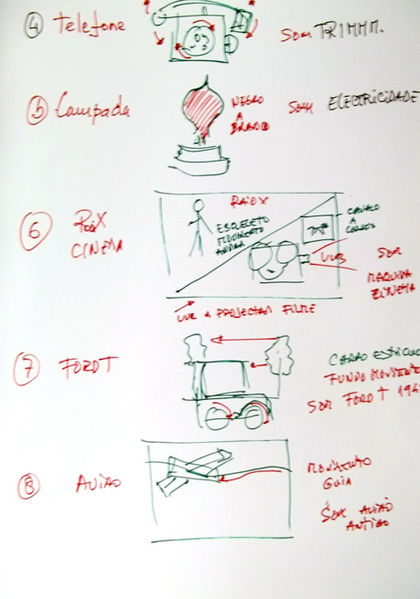 4 Telefone
SOM TRIMMM.
5 Lampada
NEGRO
A
BRANCO
SOM ELECTRICIDADE
6 RaioX
CINEMA
RAIOX
ESQUELETO
MOVIMENTO
ANDAR
CAVALO
A
CORRER
LUZ
SOM
MAQUINA
CINEMA
LUZ A PROJECTAR FILME
7 FORDT
CARRO ESTICUO
FUNDO MOVIMENTO
SOM FORD T 19
8 AVIAO
MOVIMENTO
GUIA
SOM AVIAO
ANTIGO